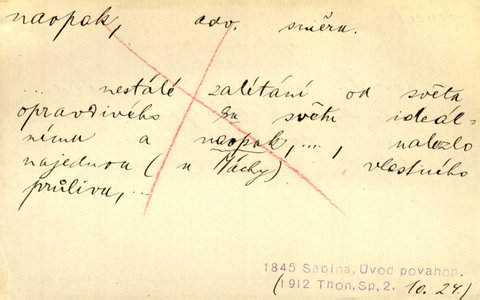 naopak, adv. směru.
... nestálé zalétání od světa
opravdivého ku světu ideál-
nému a naopak, ..., nalezlo
najednou (u Máchy) vlastního
průlivu, ...
1845 Sabina, Úvod povahop.
(1912 Thon, Sp. 2. 10.24.)